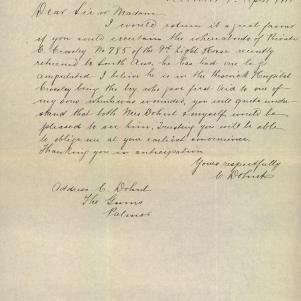 Dear Sir or Madam
I would esteem it a great favour
if you could ascertain the whereabouts of Private
C Crowley No 785 of the 9th Light Horse recently
returned to South Aus, he has had one leg
amputated I believe he is in the Keswick Hospital
Crowley being the boy who gave first aid to one of
my sons when he was wounded, you will quite under
stand that both Mrs Dohnt & myself would be
pleased to see him, Trusting you will be able
to oblige me at your earliest convenience
Thanking you in anticipation
Yours respectfully
C Dohnt
Address C. Dohnt
The Gums
Palmer